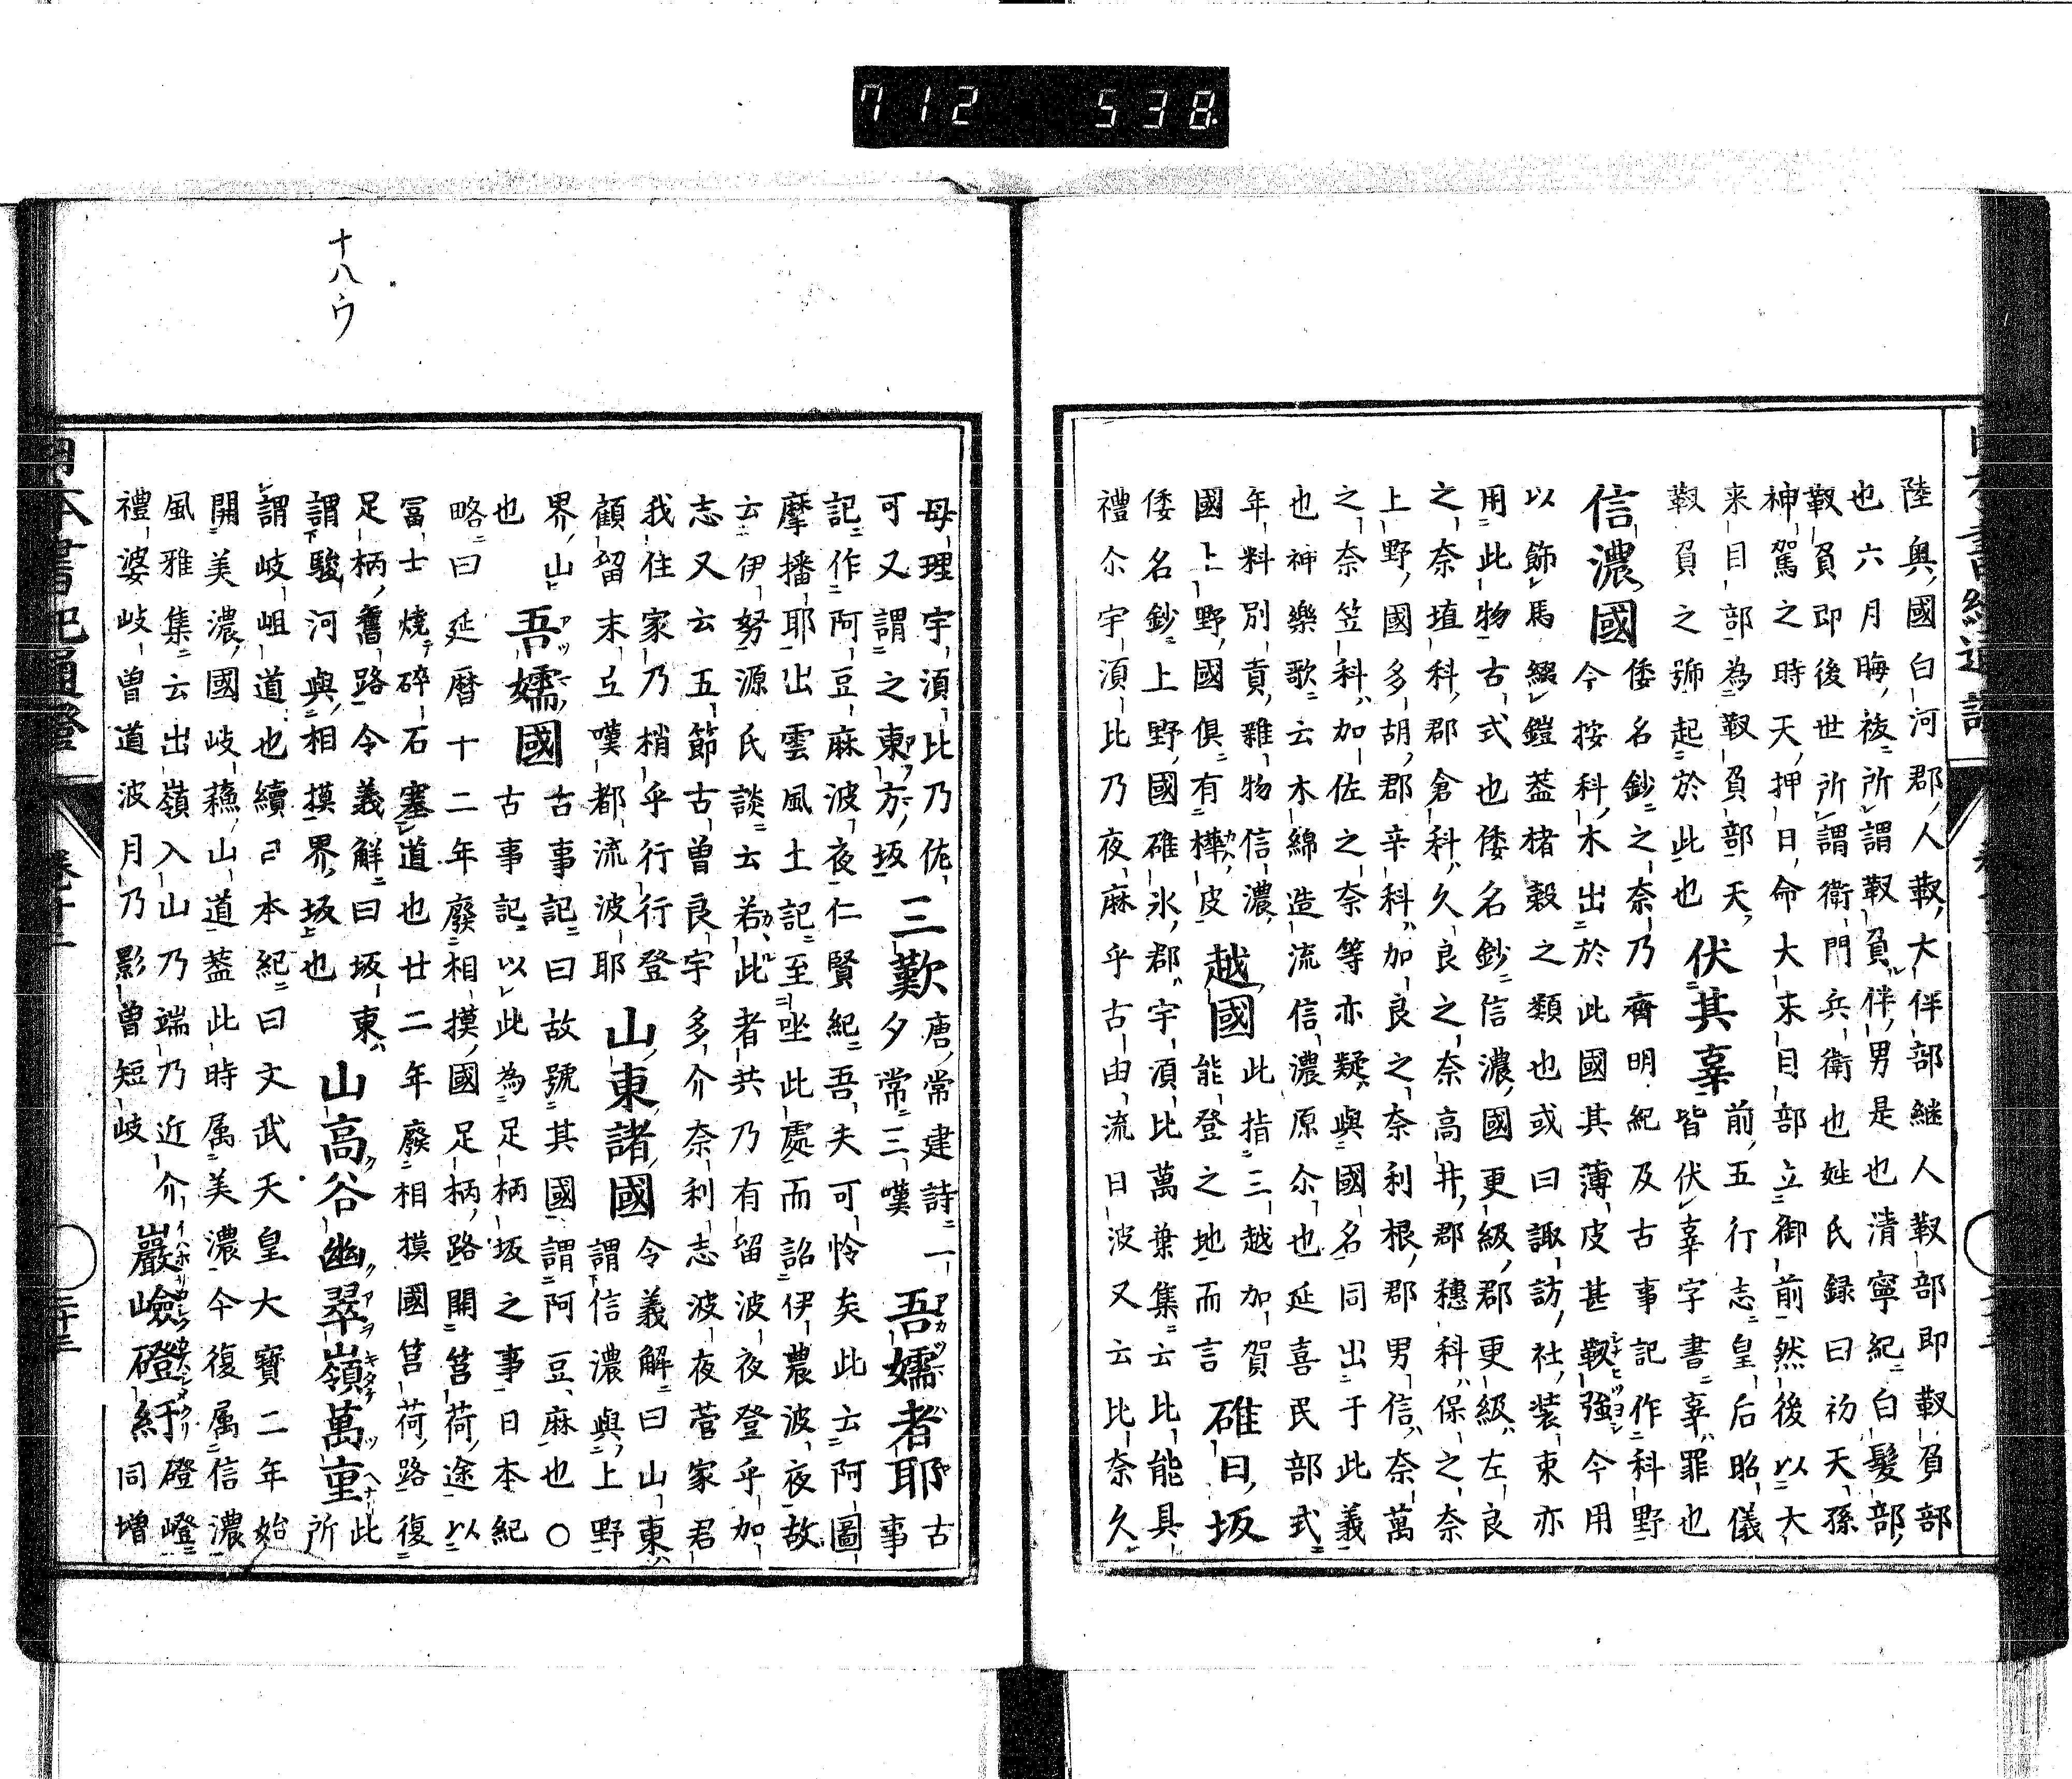 712 538
陸奥國白河郡人靫大伴部継人靫部即靫負部
也六月晦祓所謂靫負伴男是也清寧紀白髮部
靫負即後世所謂衛門兵衛也姓氏録曰初天孫
神駕之時天押日命大来目部立御前然後以大
来目部為靫負部天
靫負之號起於此也
伏其辜
前五行志皇后昭儀
皆伏辜字書辜罪也
信濃國
倭名鈔之奈乃齊明紀及古事記作科野
今按科木出於此國其薄皮甚靱強今用
以飾馬綴鎧蓋楮穀之類也或曰諏訪社裝束亦
用此物古式也倭名鈔信濃國更級郡更級左良
之奈埴科郡倉科久良之奈高井郡穗科保之奈
上野國多胡郡辛科加良之奈利根郡男信奈萬
之奈笠科加佐之奈等亦疑與國名同出于此義
也神樂歌云木綿造流信濃原尒也延喜民部式
年料別貢雜物信濃
國上野國俱有樺皮
越國
此指三越加賀
能登之地而言
碓日坂
倭名鈔上野國碓氷郡宇湏比萬葉集云比能具
禮尒宇湏比乃夜麻乎古由流日波又云比奈久
母理宇湏比乃佐
可又謂之東方坂
三歎
唐常建詩一
夕常三嘆
吾嬬者耶
古
事
記作阿豆麻波夜仁賢紀吾夫可怜矣此云阿圖
摩播耶出雲風土記至坐此處而詔伊農波夜故
云伊努源氏談云若此者共乃有留波夜登乎加
志又云五節古曽良宇多介奈利志波夜菅家君
我住家乃梢乎行行登
顧留末𠃔嘆都流波耶
山東諸國
令義解曰山東
謂信濃與上野
界山
也
吾嬬國
古事記曰故號其國謂阿豆麻也〇
古事記以此為足柄坂之事日本紀
略曰延暦十二年廢相摸國足柄路開筥荷途以
冨士燒碎石塞道也廿二年廢相摸國筥荷路復
足柄舊路令義解曰坂東
謂駿河與相摸界坂也
山高谷幽翠嶺萬重
此
所
謂岐岨道也續日本紀曰文武天皇大寶二年始
開美濃國岐蘓山道蓋此時属美濃今復属信濃
風雅集云出嶺入山乃端乃近介
禮婆岐曽道波月乃影曽短岐
巖嶮磴紆
磴嶝
同増
十八ウ
日本書紀通證